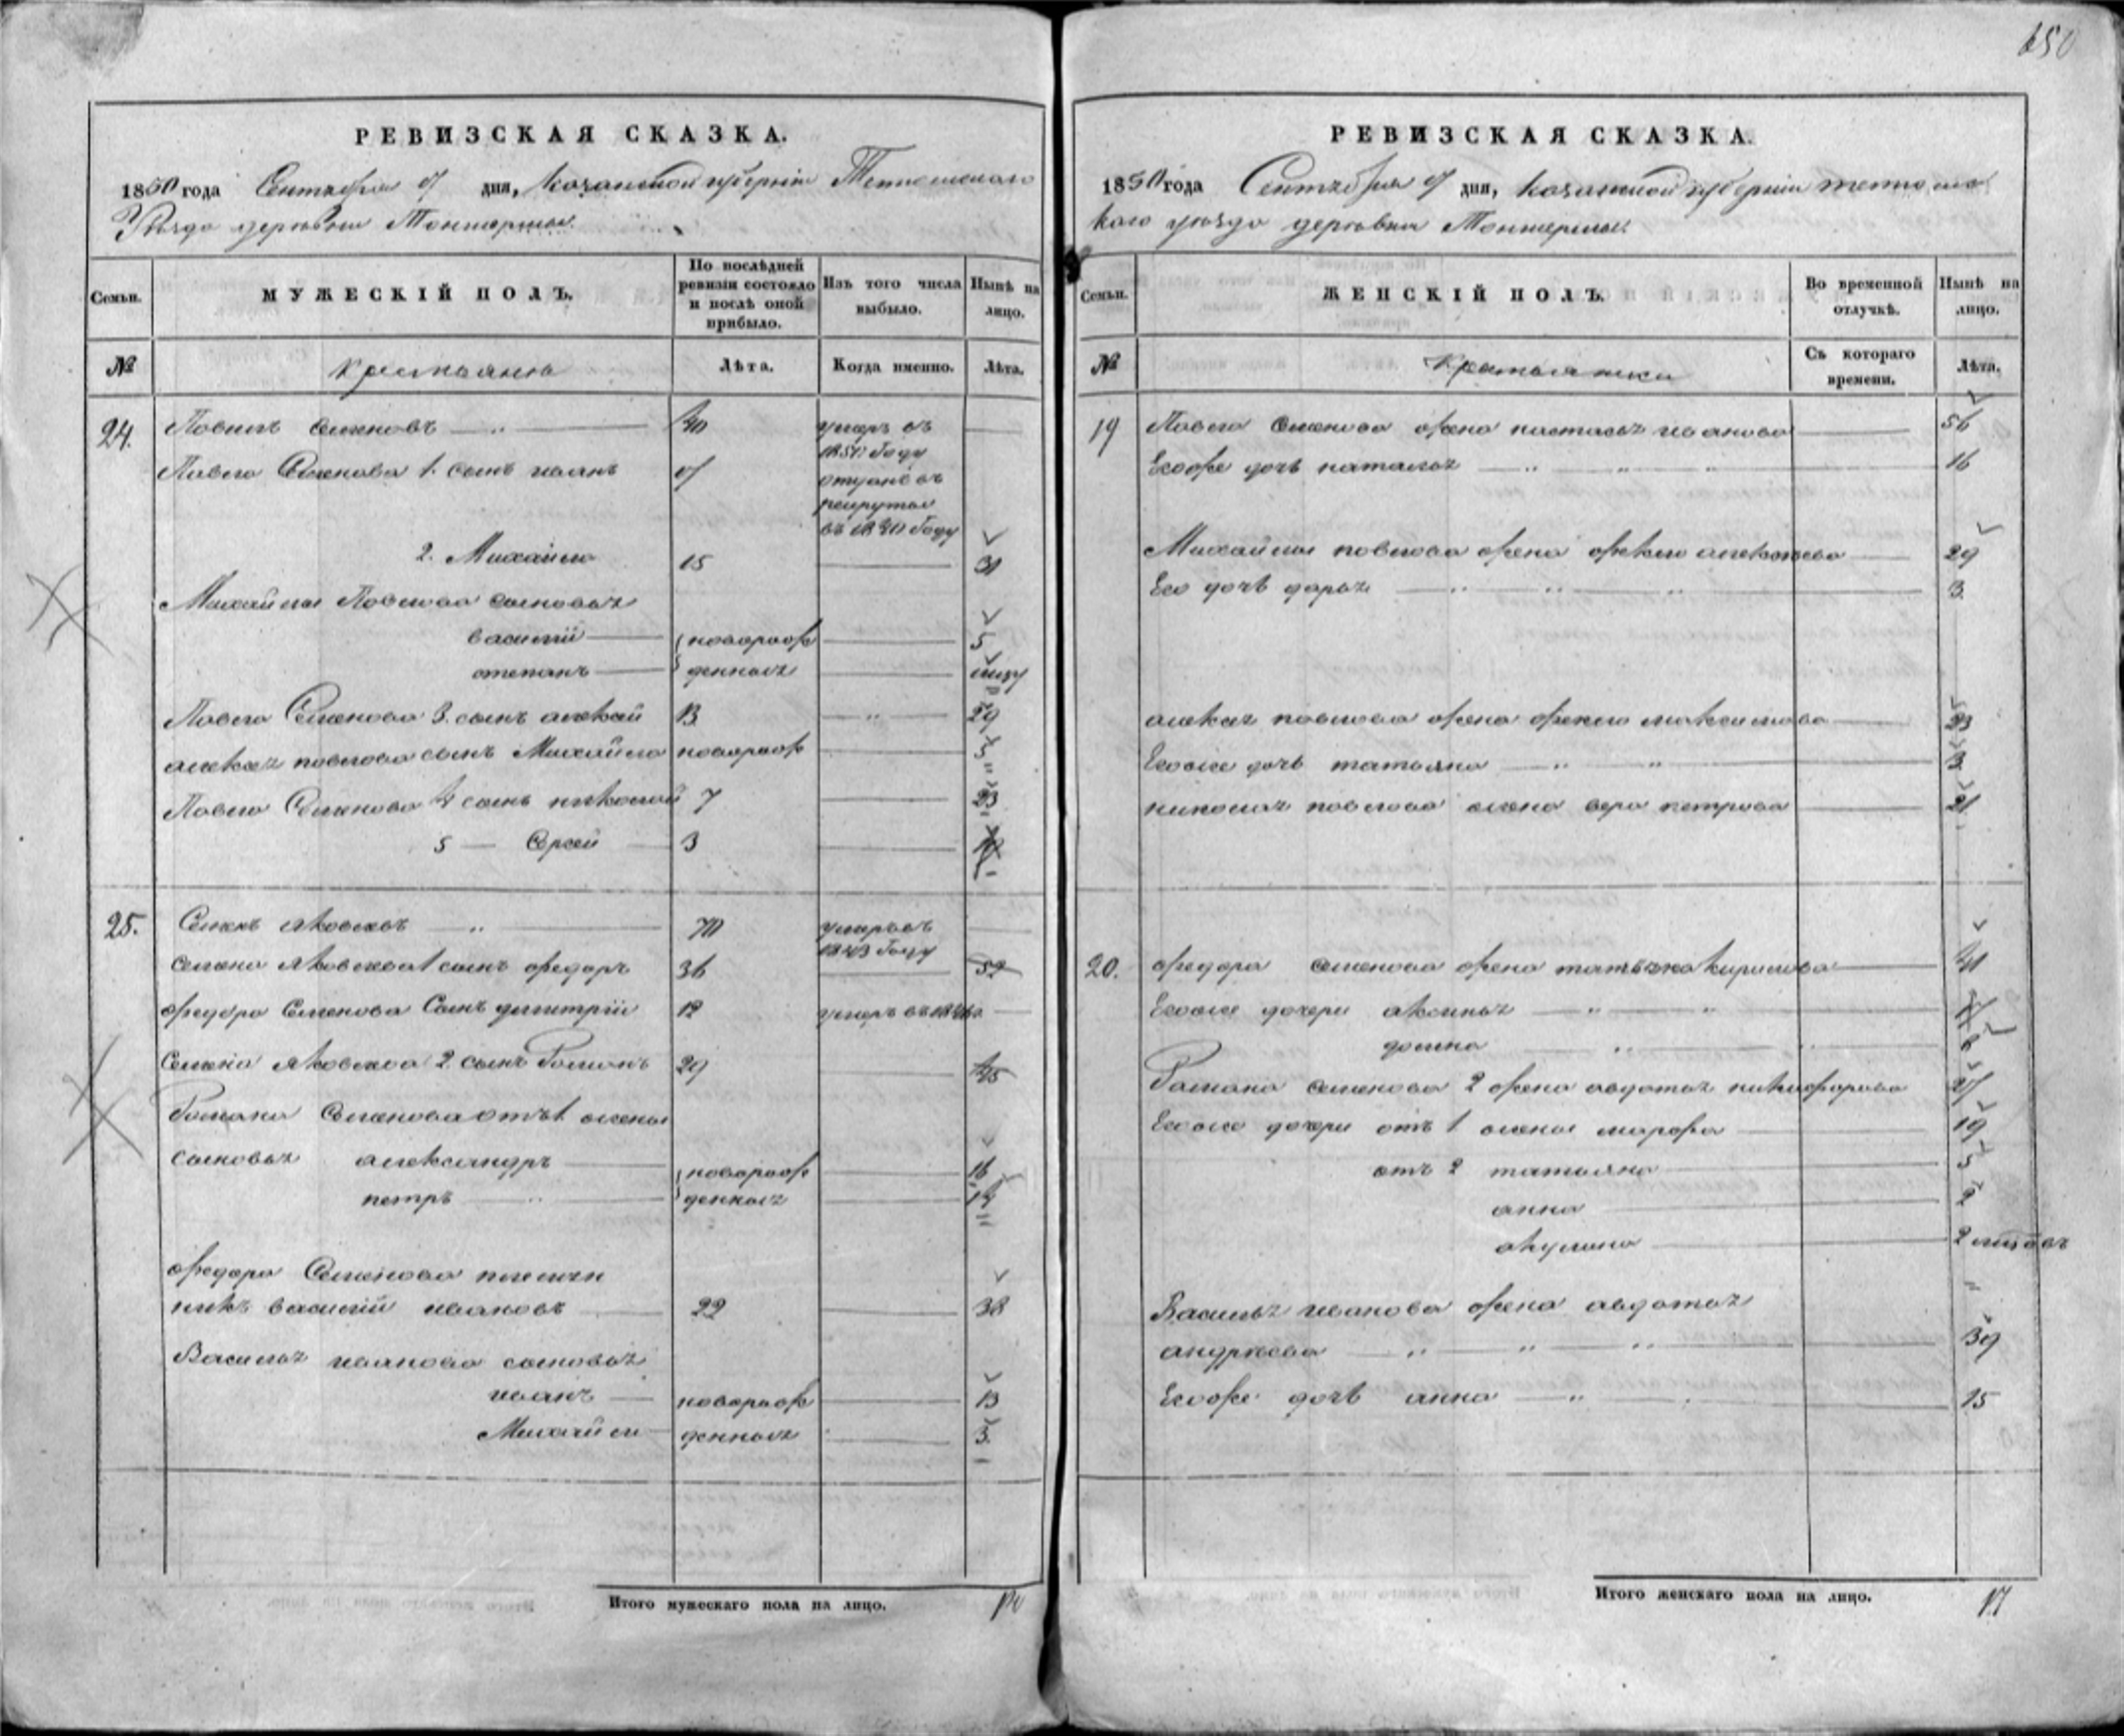 650
РЕВИЗСКАЯ СКАЗКА.
1850 года Сентября 9 дня, Казанской губернiи Тетюшскаго
Уѣзда деревни
Семьи.
МУЖЕСКIЙ ПОЛЪ.
По послѣдней ревизiи состояло и послѣ оной прибыло.
Изъ того числа выбыло.
Нынѣ на лицо.
№
крестьяне
Лѣта.
Когда именно.
Лѣта.
24. Павелъ Семеновъ 40 умеръ въ
Году
Павла Семенова 1. сынъ иванъ отданъ въ
рекруты
въ 1840 Году
2. Михайла 15 31
Михайлы Павлова сыновья
василiй новорож 5
степанъ денныя
Павла Семенова 3. сынъ алексей 13 29
алексея павлова сынъ Михайла новорож 5
Павла Семенова 4 сынъ николай 7 23
5 — Сергей 3
25. Семенъ яковлевъ 70 умеръ въ
1843 Году
семена яковлева 1 сынъ федоръ 36 52
федора Семенова Сынъ димитрiй 12 умеръ въ
Семена яковлева 2 сынъ Романъ 29 45
Романа Семенова отъ 1 жены
сыновья александръ новорож 16
петръ денныя 14
федора Семенова племян
никъ василiй ивановъ 22 38
Василья иванова сыновья
иванъ новорож 13
Михайла денныя 3.
Итого мужескаго пола на лицо.
РЕВИЗСКАЯ СКАЗКА.
1850 года Сентября 9 дня, казанской губернiи тетюшс
каго уѣзда деревни
Семьи.
ЖЕНСКIЙ ПОЛЪ.
Во временной отлучкѣ.
Нынѣ на лицо.
№
Крестьянки
Съ котораго времени.
Лѣта.
19 Павла Семенова жена настасья иванова 56
Егоже дочь наталья 16
Михайлы павлова жена фекла алексеева 29
Его дочь дарья 3
алексея павлова жена фекла максимова 23
Егоже дочь татьяна 3
николая павлова жена вера петрова 21
20. федора семенова жена татьяна кирилова 41
Егоже дочери аксинья
домна
Романа семенова 2 жена авдотья никифорова
Егоже дочери отъ 1 жены марфа 19
отъ 2 татьяна 5
анна 2
акулина
Василья иванова жена авдотья
андреева 39
Егоже дочь анна 15
Итого женскаго пола на лицо. 17